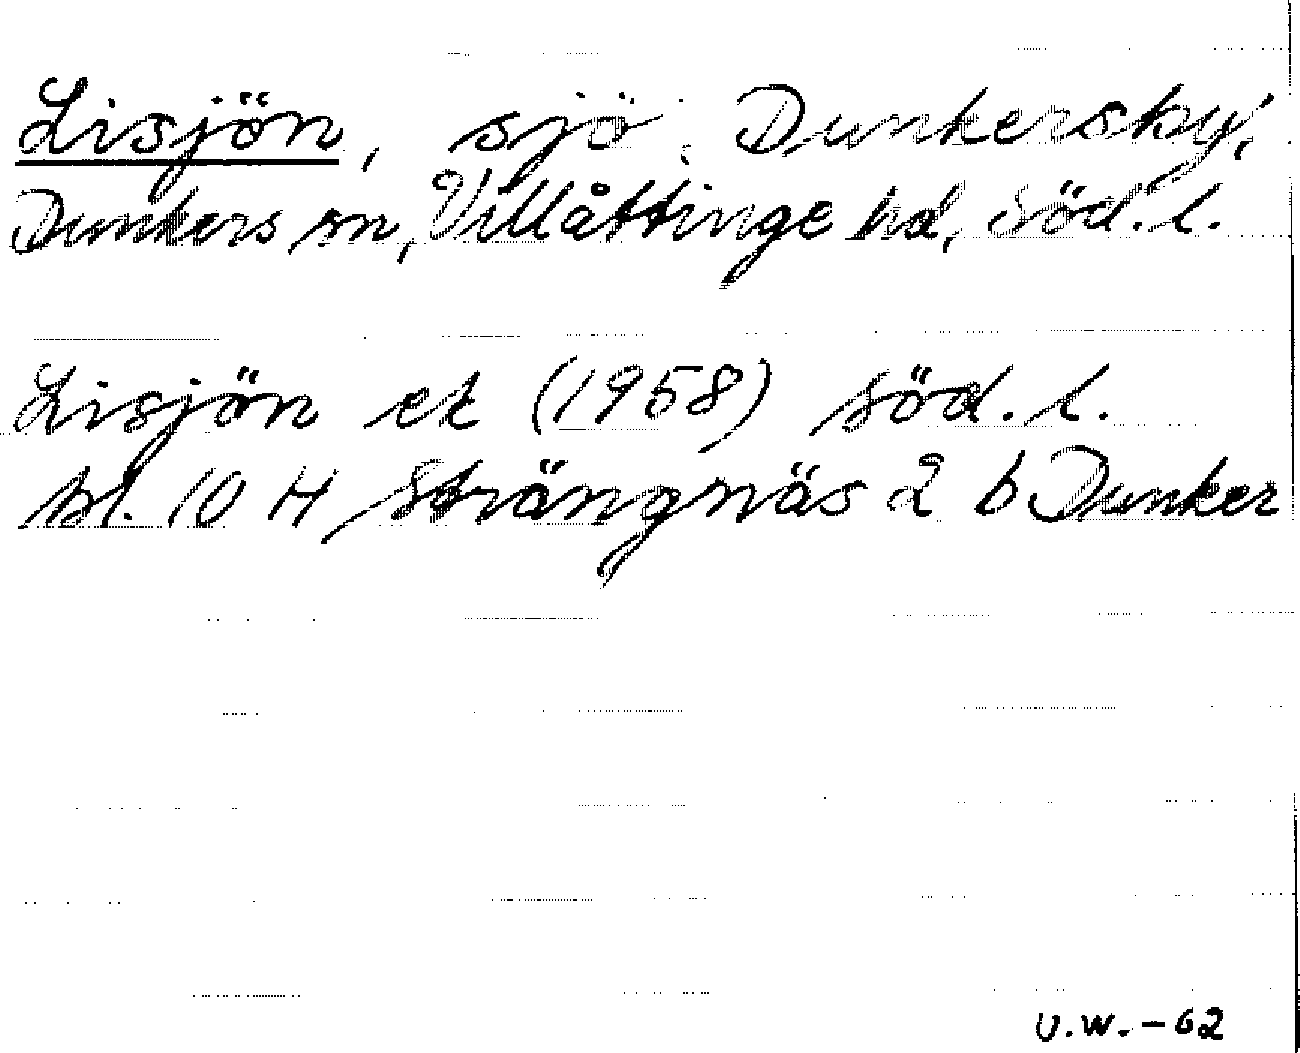 Lisjön, sjö. Dunkersby,
Dunkers sn, Villåttinge hd, Söd. l.
Lisjön ek (1958) Söd. l.
bl. 10 H Strängnäs 2 b Dunker
U.W.-62